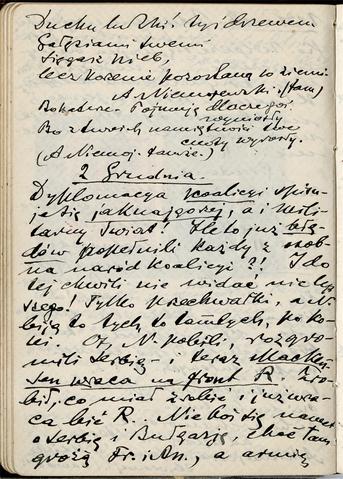 Duchu ludzki! tyś drzewem
Gałęziami swemi
Sięgasz nieb,
lecz korzenie pozostaną w ziemi
A Niemojewski. (tam)
Bohaterze. Pojmuję dlaczegoś
wyniosły
Bo z twoich namiętności twe
cnoty wyrosły.
(A Niemoj. tamże.)
2 Grudnia.
Dyplomacya koalicyi spisu-
je się jaknajgorzej, a i mili-
tarny świat! Ile to już błę-
dów popełnili każdy z osob-
na naród koalicyi?! I do
tej chwili nie widać nic lep-
szego! Tylko przechwałki, a N.
biją to tych to tamtych, po ko-
lei. Oj, N. pobili, rozgro-
mili Serbię - i teraz Macken-
sen wraca na front R. Zro-
bił, co miał zrobić i już wra-
ca bić R.. Nie boi się nawet
o Serbię i Bułgarję, choć tam
grożą Fr. i An., a armię